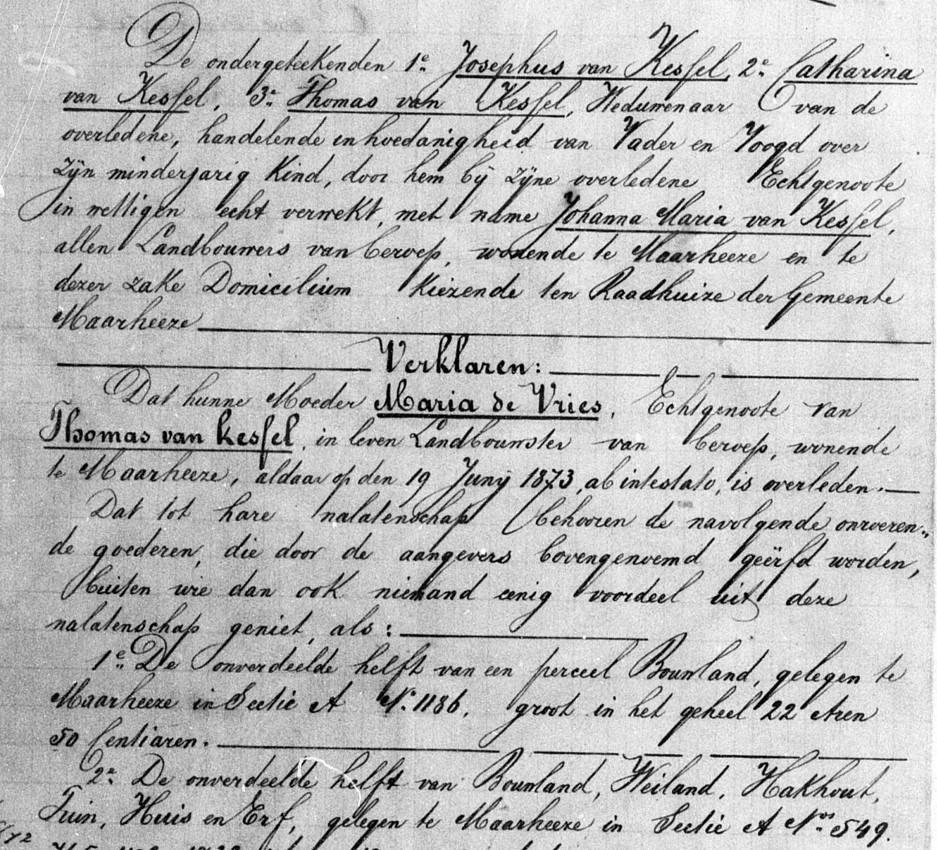 De ondergeteekenden 1e. Josephus van Kessel, 2e. Catharina
van Kessel, 3e. Thomas van Kessel, Weduwenaar van de
overledene, handelende in hoedanigheid van Vader en Voogd over
zijn minderjarig Kind, door hem bij zijne overledene Echtgenoote
in wettigen echt verwekt, met name Johanna Maria van Kessel,
allen Landbouwers van beroep, wonende te Maarheeze en te
dezer zake Domicilium Kiezende ten Raadhuize der Gemeente
Maarheeze
Verklaren:
Dat hunne Moeder Maria de Vries, Echtgenoote van
Thomas van Kessel, in leven Landbouwster van beroep, wonende
te Maarheeze, aldaar op den 19 Junij 1873, ab intestato, is overleden.
Dat tot hare nalatenschap behooren de navolgende onroeren„
de goederen, die door de aangevers bovengenoemd geërfd worden,
buiten wie dan ook niemand eenig voordeel uit deze
nalatenschap geniet, als:
1e. De onverdeelde helft van een perceel Bouwland, gelegen te
Maarheeze in Sectie A No. 1186, groot in het geheel 22 Aren
50 Centiaren.
2e. De onverdeelde helft van Bouwland, Weiland, Hakhout,
Tuin, Huis en Erf, gelegen te Maarheeze in Sectie A Nos. 549.